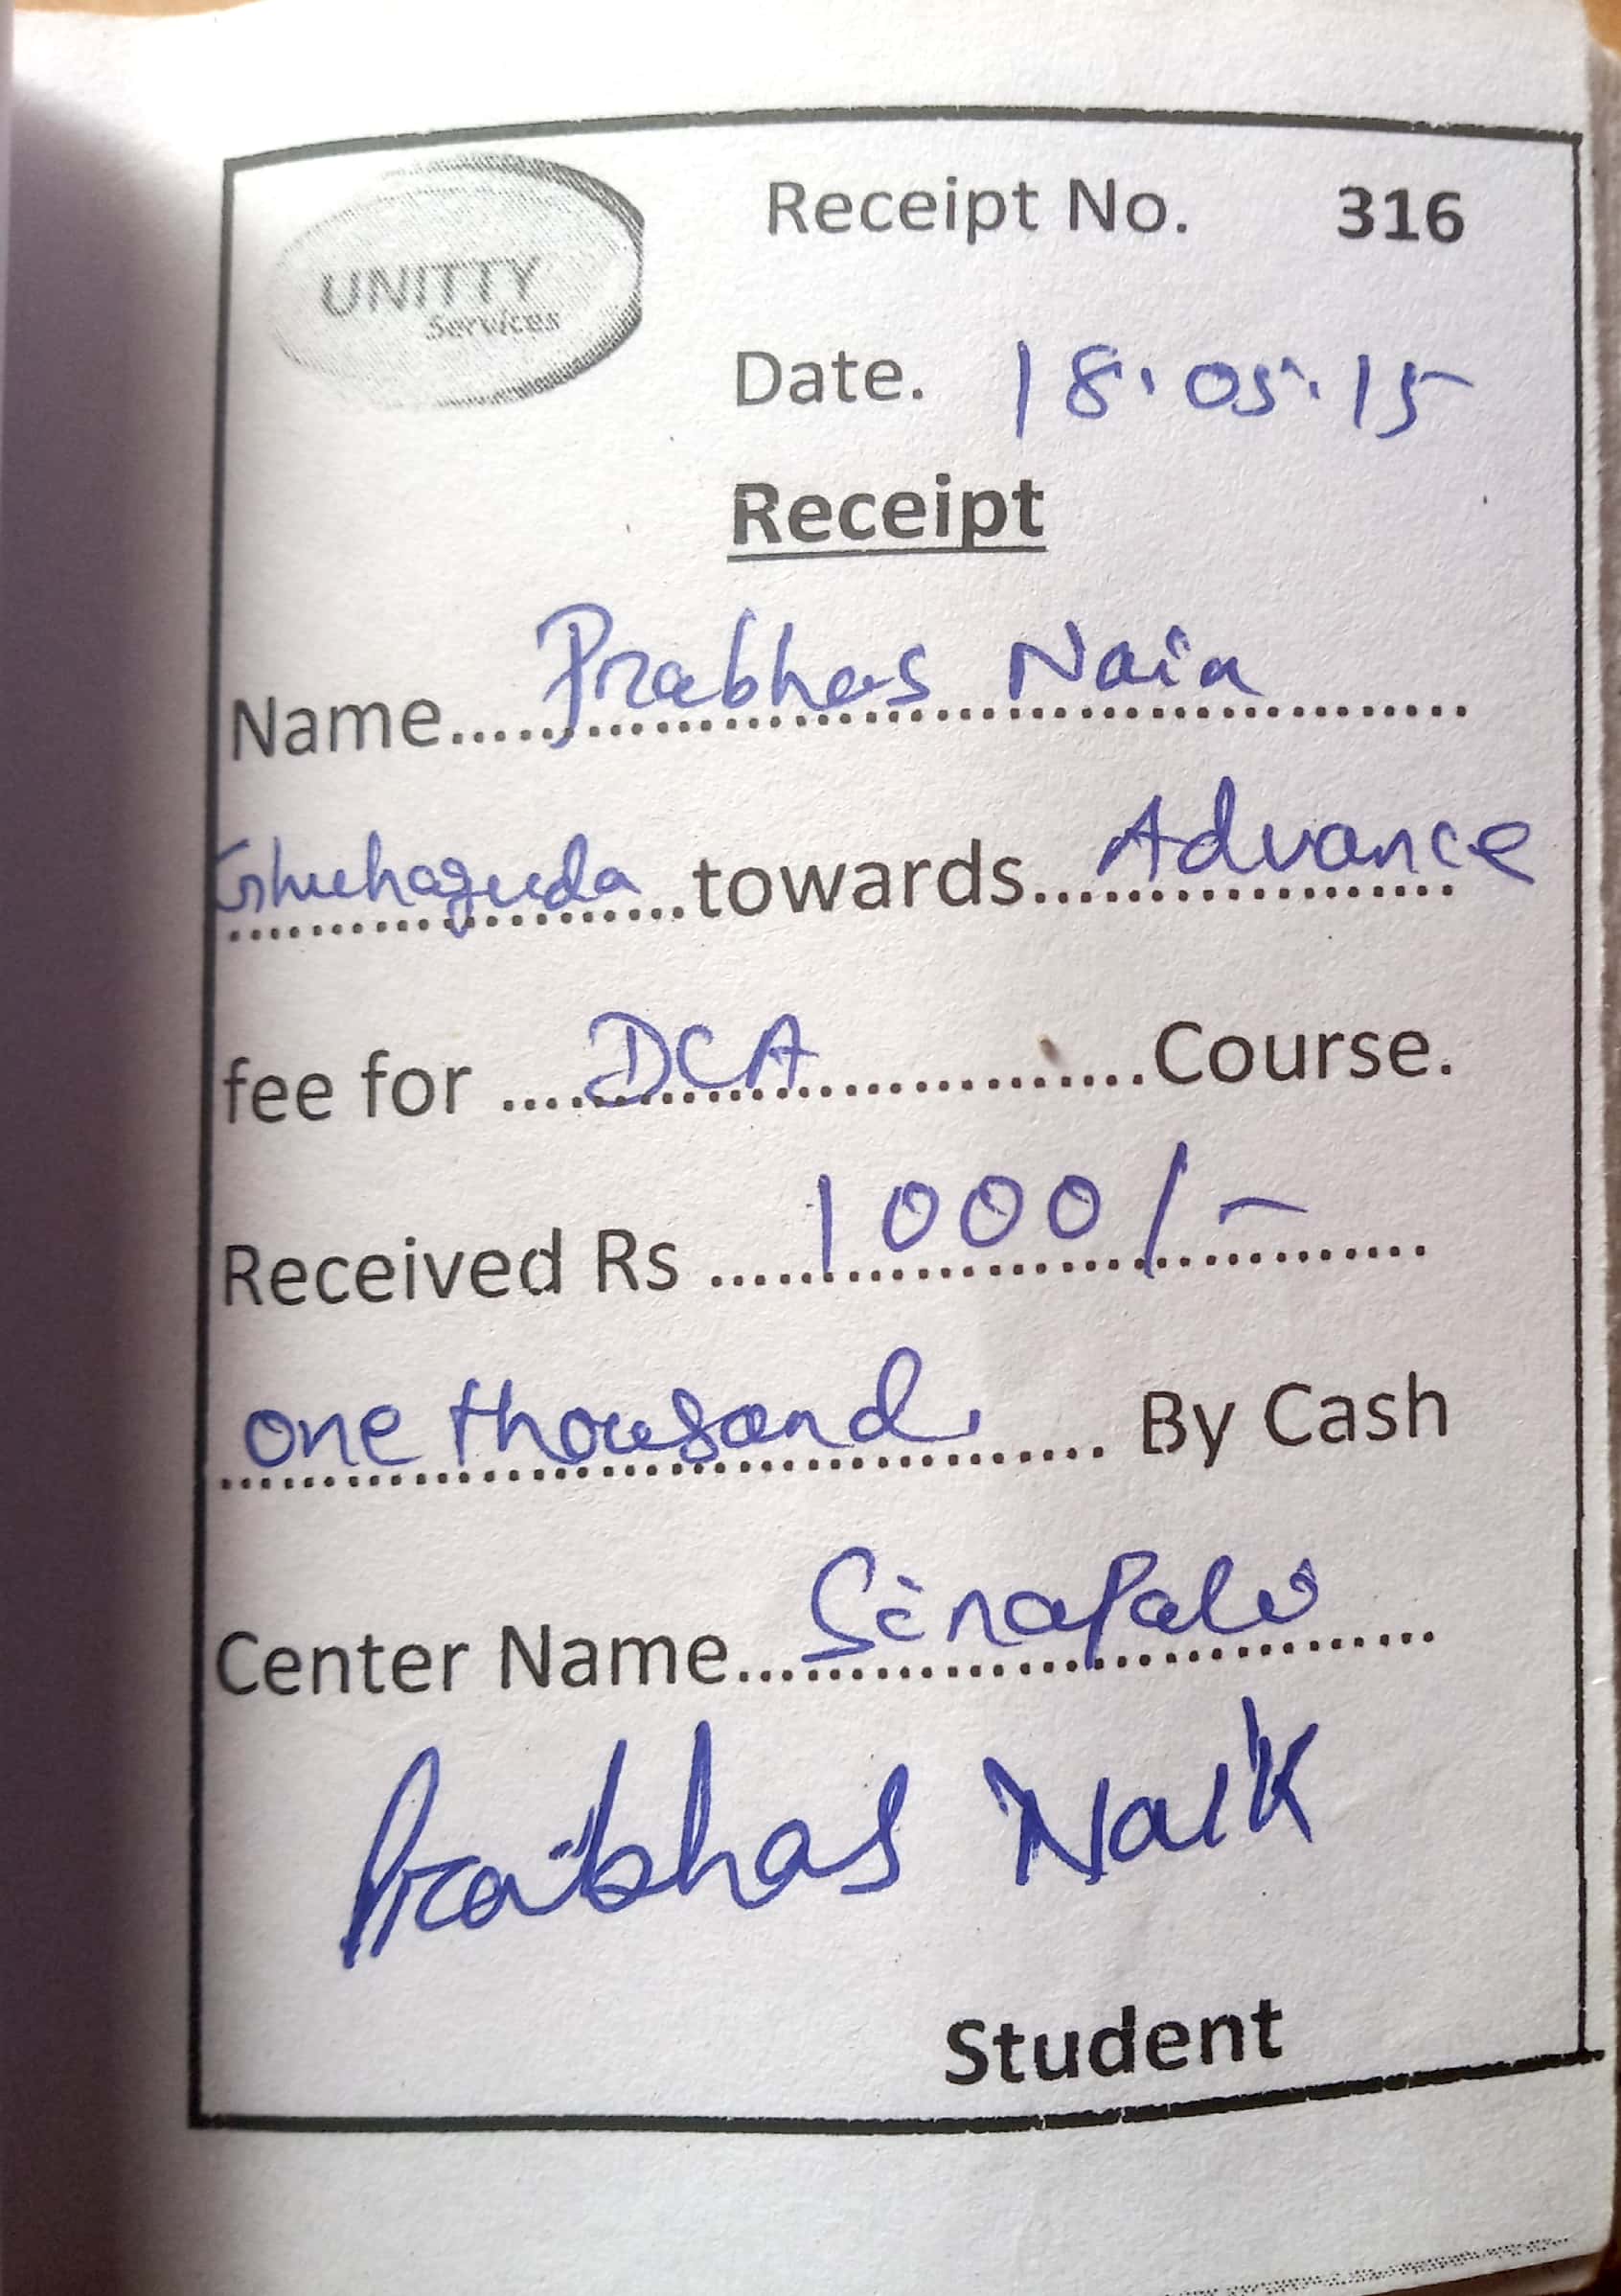 UNITTY
Services
Receipt No. 316
Date. 18.05.15
Receipt
Name..... Prabhas Naik
Ghuhaguda ...towards... Advance
fee for .... DCA ............Course.
Received Rs ..... 1000/-
one thousand. .... By Cash
Center Name... Sinapali
Prabhas Naik
Student